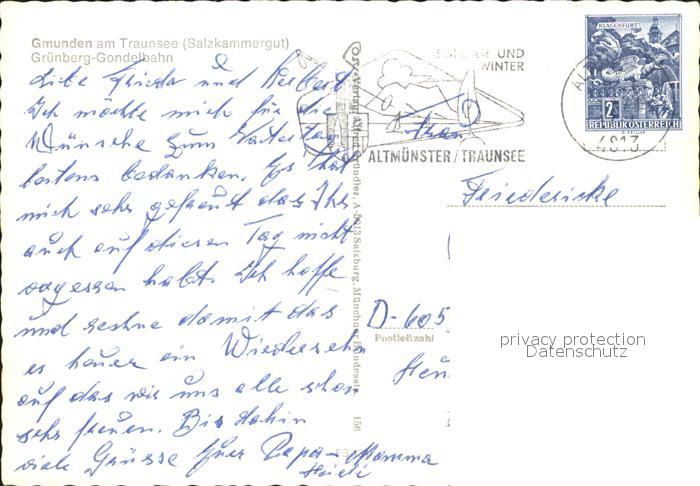 Gmunden am Traunsee (Salzkammergut)
Grünberg-Gondelbahn
Liebe Frieda und Herbert
Ich möchte mich für die
Wünsche zum Vatertag
bestens bedanken. Es hat
mich sehr gefreut das Ihr
auch auf diesen Tag nicht
vergessen habt. Ich hoffe
und rechne damit das
es heuer ein Wiedersehn
auf das wir uns alle schon
sehr freuen. Bis dahin
viele Grüsse Euer Papa - Mamma
Heidi
Verlag Alfred Gründler, A-5013 Salzburg, Münchner Bundesstr. 156
SOMMER UND
WINTER
ALTMÜNSTER/TRAUNSEE
KLAGENFURT
2
REPUBLIK ÖSTERREICH
4813
Frau
Friedericke
D-605
Postleitzahl
privacy protection
Datenschutz